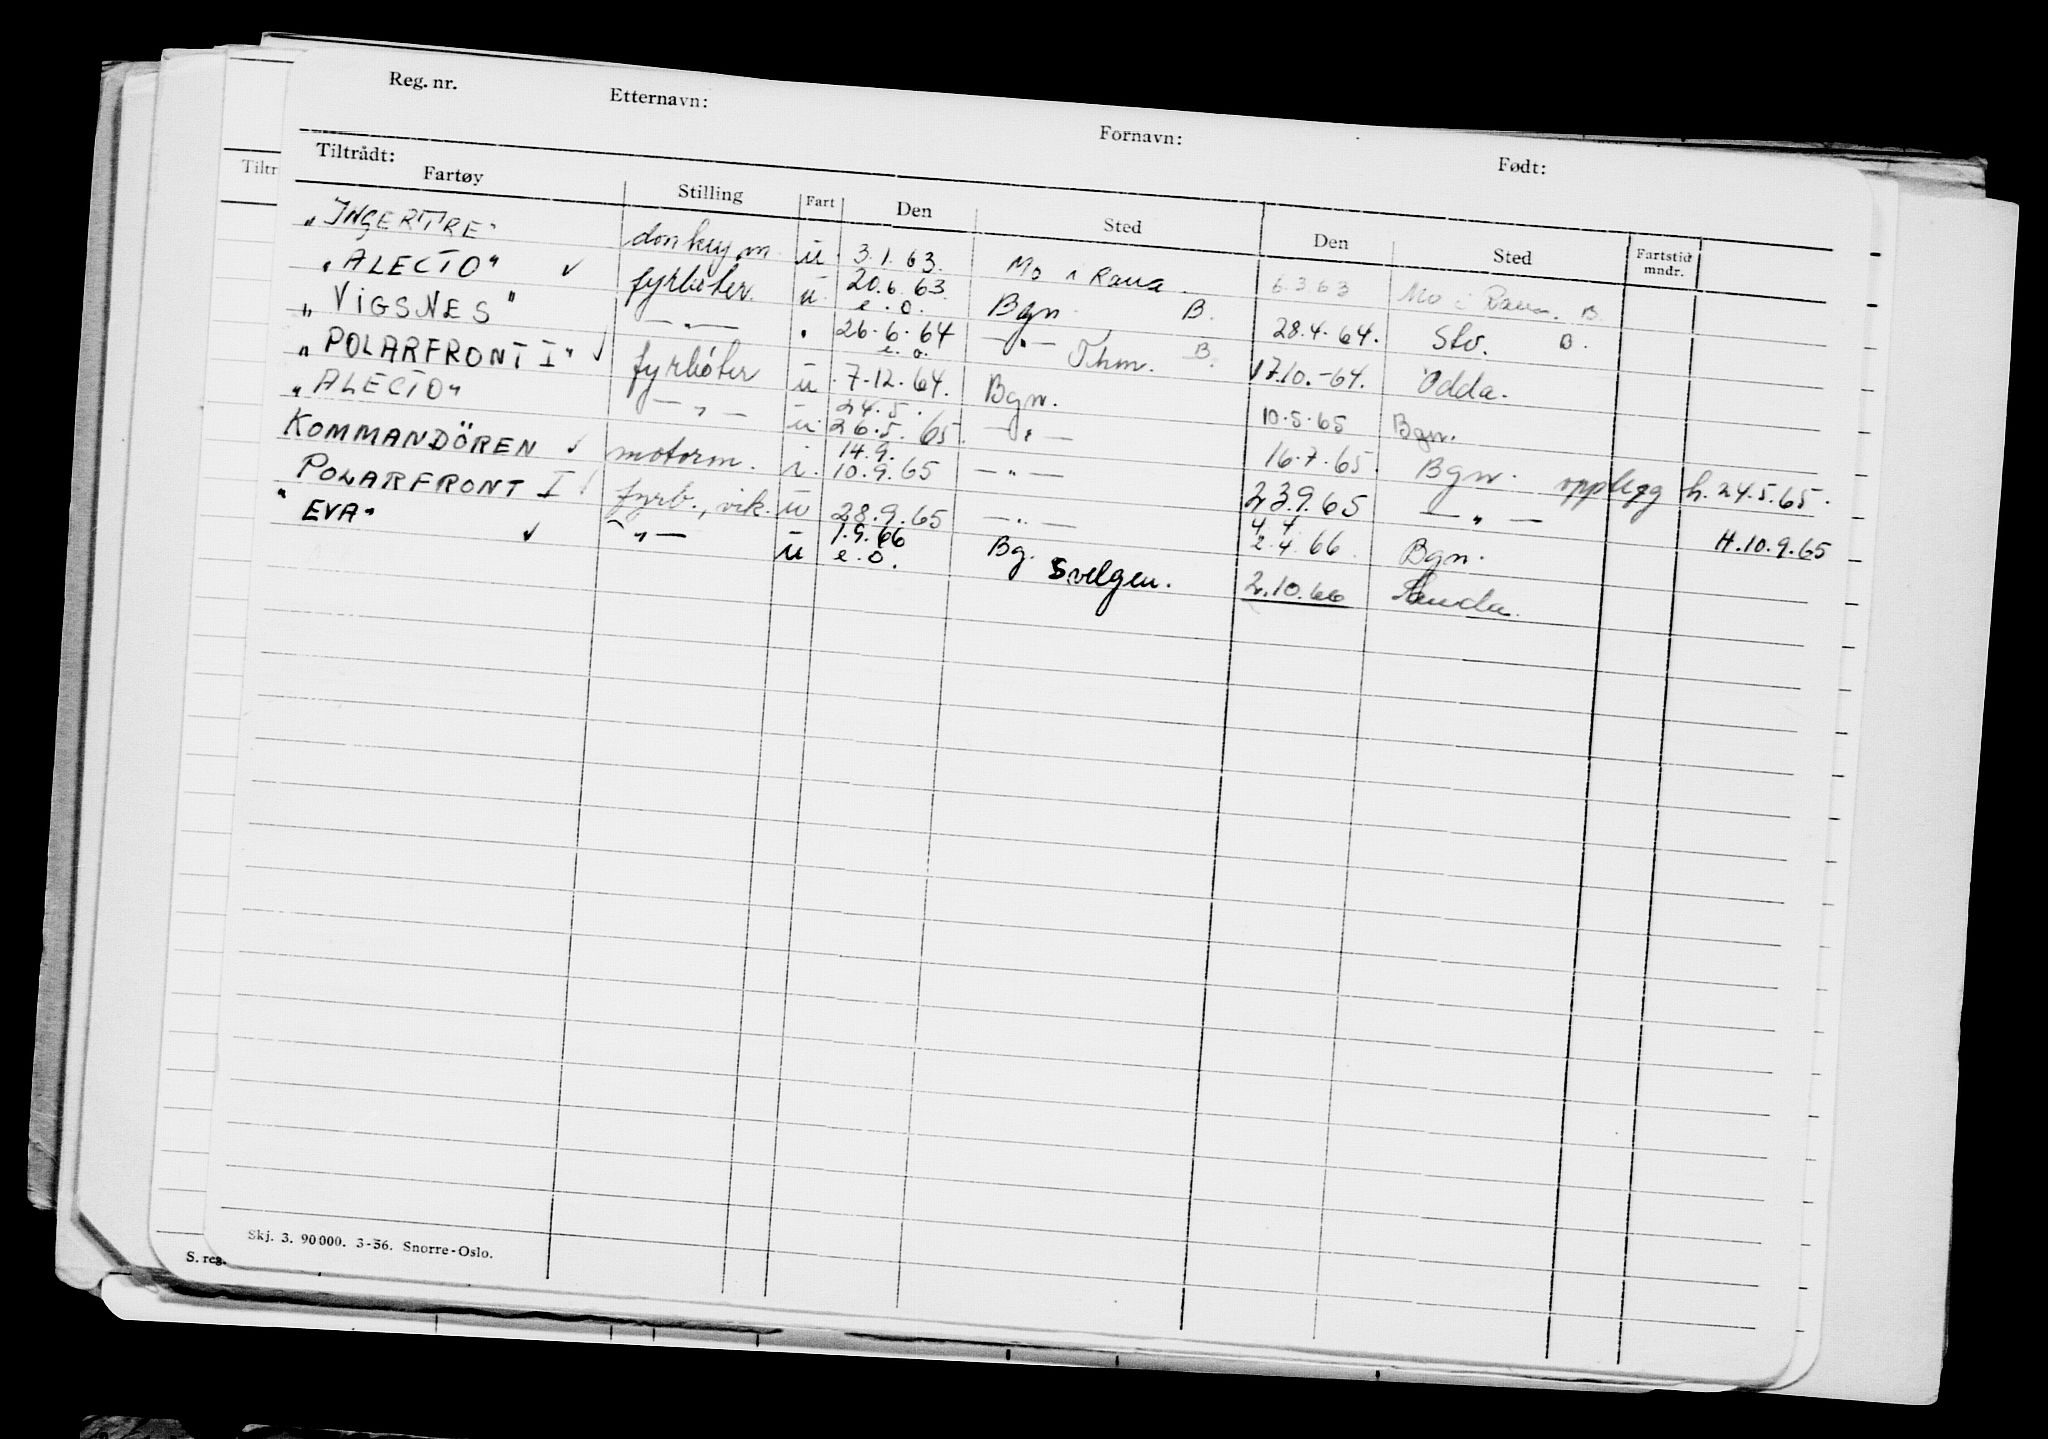 Reg. nr. Etternavn: Fornavn: Født:
Tiltrådt:
Tiltr
Fartøy Stilling Fart Den Sted Den Sted Fartstid mndr.
"INGERTRE" donkeym. u 3.1.63. Mo i Rana. 6.3.63 Mo i Rana. B.
"ALECTO" ✓ fyrbøter. u. 20.6.63. e.o. Bgn. B. 28.4.64. Stv. B.
"VIGSNES" — " — . 26.6.64 e.o. — " — Thm. B. 17.10.-64. Odda.
"POLARFRONT I" ✓ fyrbøter u. 7.12.64. Bgn. 10.5.65 Bgn.
"ALECTO" — " — u. 24.5. 26.5.65. — " — 16.7.65. Bgn. opplegg h. 24.5.65.
KOMMANDÖREN ✓ motorm. i. 14.9. 10.9.65 — " — 23.9.65 — " — H.10.9.65
POLARFRONT I ✓ fyrb., vik. u 28.9.65 — " — 4.4 2.4.66. Bgn.
"EVA" ✓ — " — u 1.9.66 e.o. Bg. Svelgen. 2.10.66 Sauda.
Skj. 3. 90000. 3-56. Snorre-Oslo.
S. reg.